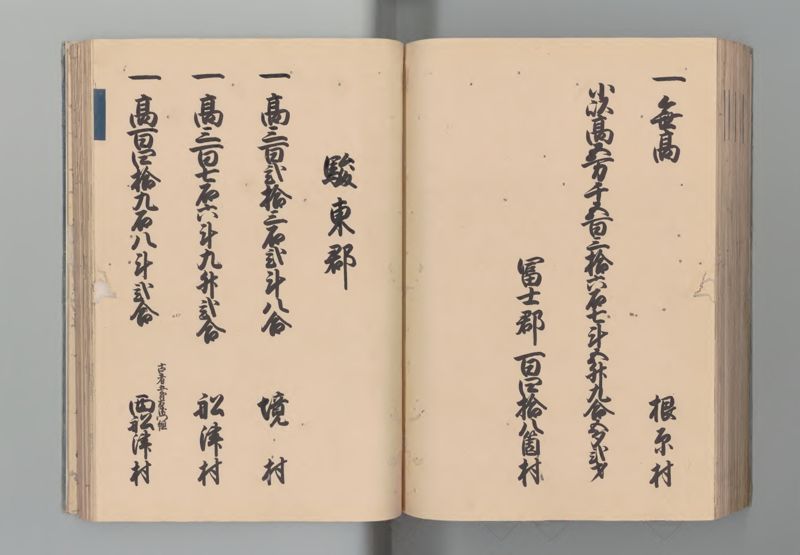 一 無高 根原村
小以高五万千五百三拾六石七斗五升九合五夕弐才
冨士郡 百四拾八箇村
駿東郡
一 高三百弐拾三石弐斗八合 境村
一 高三百七石六斗九升弐合 舩津村
一 高百四拾九石八斗弐合 西舩津村